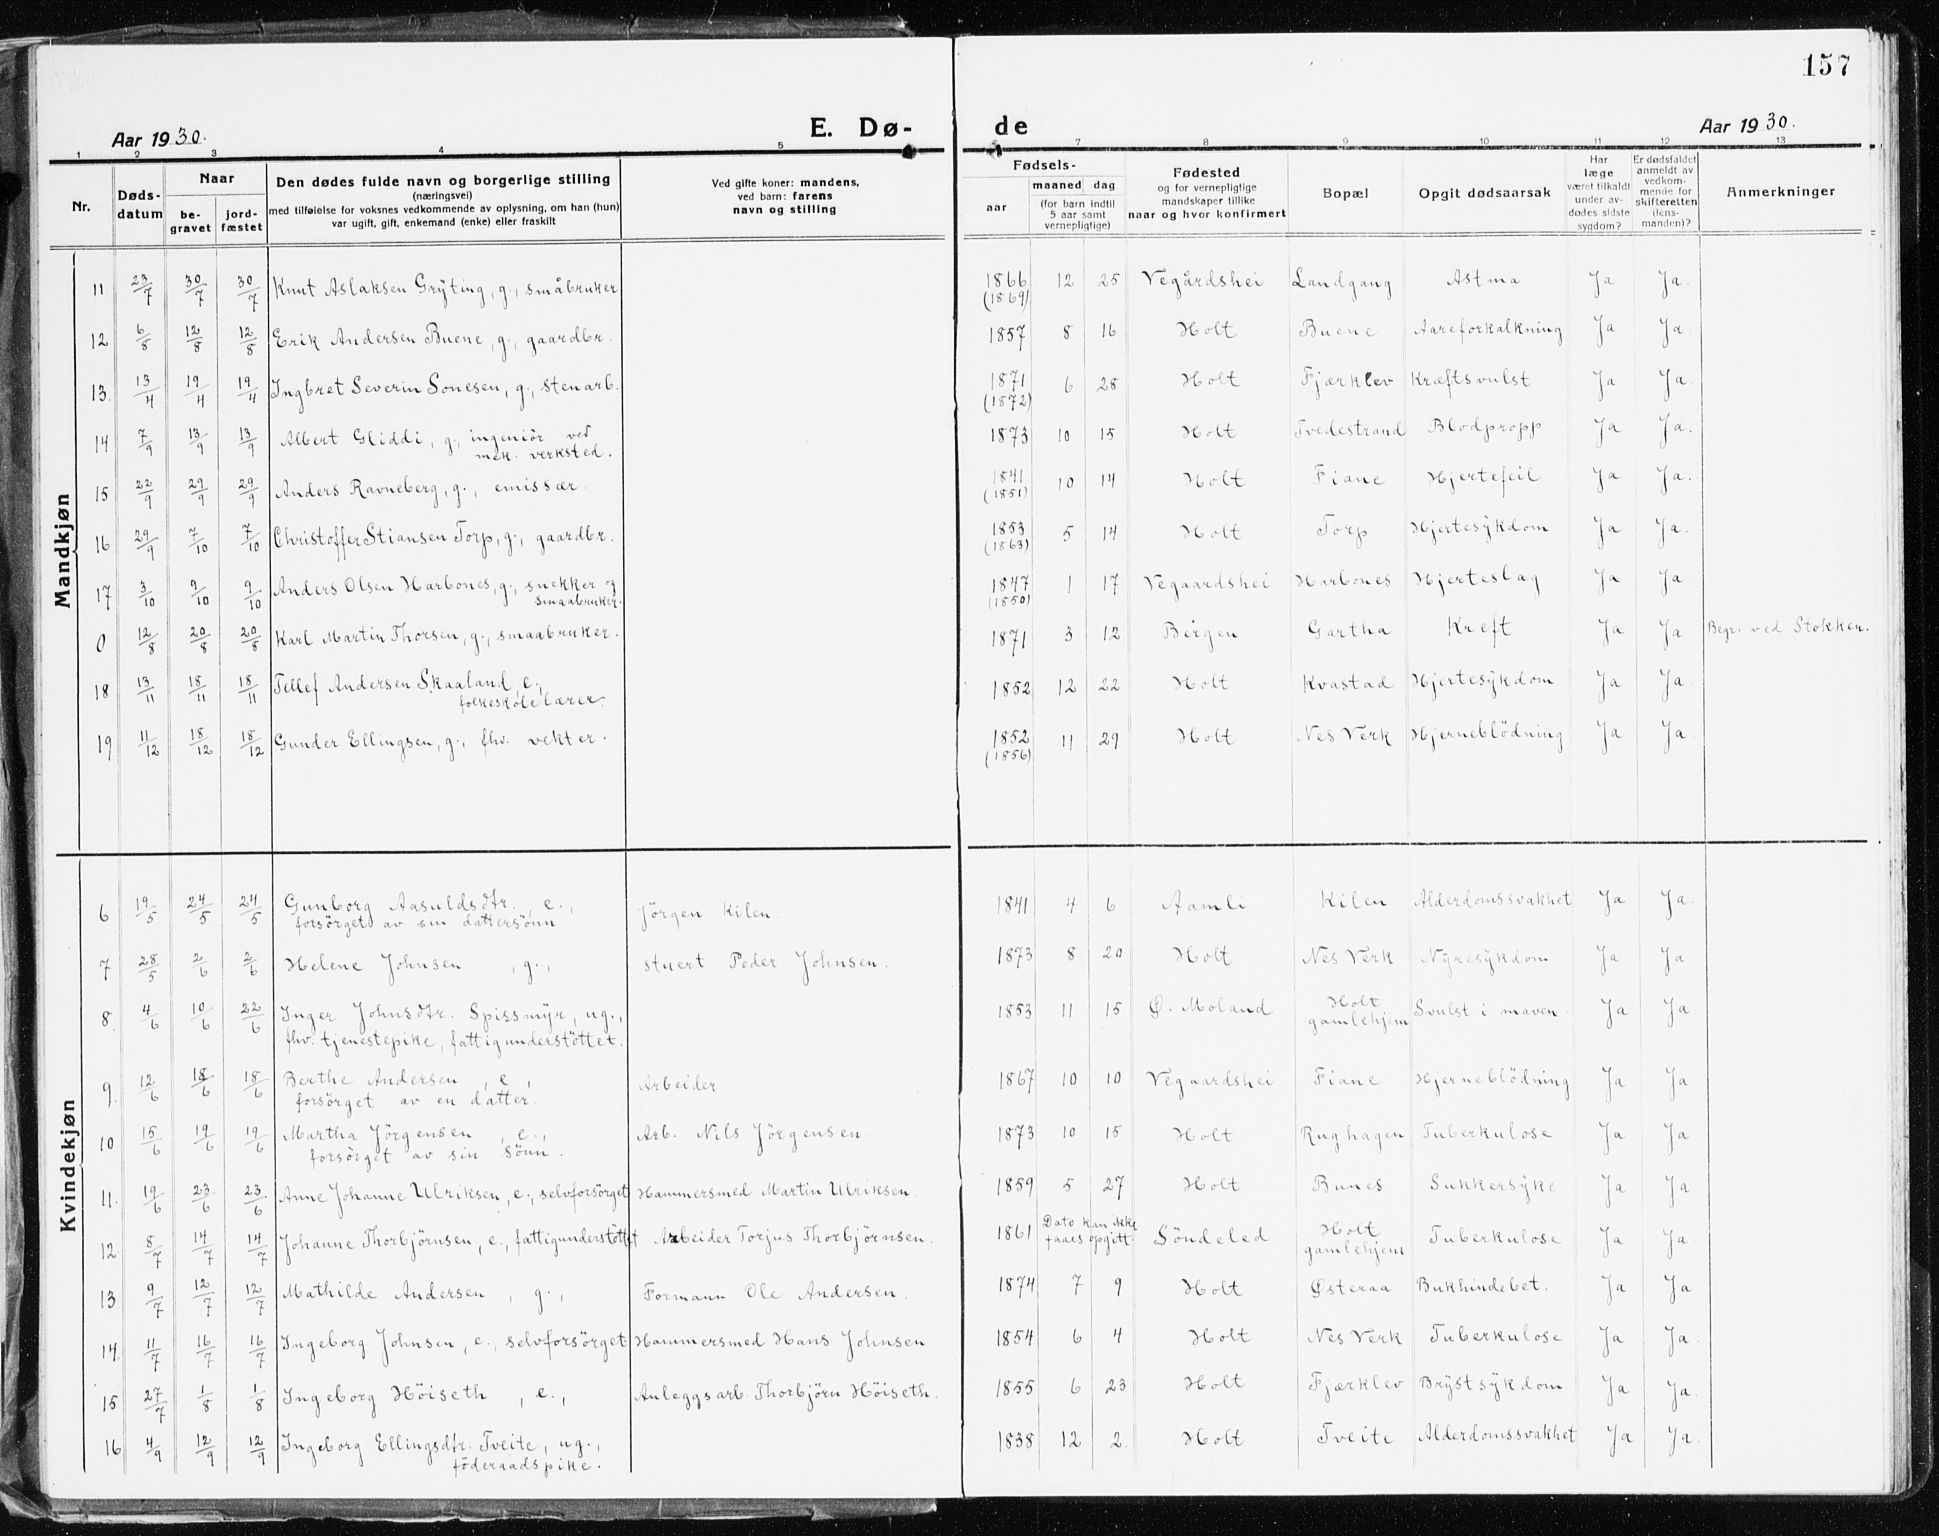 157
Aar 1930.
E. Dø-
de
Aar 1930.
1 2 3 4 5 7 8 9 10 11 12 13
Nr.
Døds-
datum
Naar
be-
gravet
jord-
fæstet
Den dødes fulde navn og borgerlige stilling
(næringsvei)
med tilføielse for voksnes vedkommende av oplysning, om han (hun)
var ugift, gift, enkemand (enke) eller fraskilt
Ved gifte koner: mandens,
ved barn: farens
navn og stilling
Fødsels-
aar
maaned dag
(for barn indtil
5 aar samt
vernepligtige)
Fødested
og for vernepligtige
mandskaper tillike
naar og hvor konfirmert
Bopæl
Opgit dødsaarsak
Har
læge
været tilkaldt
under av-
dødes sidste
sygdom?
Er dødsfaldet
anmeldt av
vedkom-
mende for
skifteretten
(lens-
manden)?
Anmerkninger
Mandkjøn
11 23/7 30/7 30/7 Knut Aslaksen Grÿting, g., småbruker 1866 12 25 Vegårdshei Landgang Astma Ja Ja.
(1869)
12 6/8 12/8 12/8 Erik Andersen Buene, g., gaardbr. 1857 8 16 Holt Buene Aareforkalkning Ja Ja.
13. 13/4 19/4 19/4 Ingbret Severin Sonesen, g., stenarb. 1871 6 28 Holt Fjærklev Kræftsvulst Ja Ja.
(1872)
14 7/9 13/9 13/9 Albert Gliddi, g., ingeniör ved 1873 10 15 Holt Tvedestrand Blodpropp Ja Ja.
mek. verksted.
15 22/9 29/9 29/9 Anders Ravneberg, g., emissær. 1841 10 14 Holt Fiane Hjertefeil Ja Ja.
(1851)
16 29/9 7/10 7/10 Christoffer Stiansen Torp, g., gaardbr. 1853 5 14 Holt Torp Hjertesÿkdom Ja Ja.
(1863)
17 3/10 9/10 9/10 Anders Olsen Harbones, g., snekker og 1847 1 17 Vegaardshei Harbones Hjerteslag Ja Ja.
smaabruker. (1850)
0 12/8 20/8 20/8 Karl Martin Thorsen, g., smaabruker. 1871 3 12 Bergen Gartha Kreft Ja Ja Begr. ved Stokken.
18 13/11 18/11 18/11 Tellef Andersen Skaaland, e., 1852 12 22 Holt Kvastad Hjertesÿkdom Ja Ja.
folkeskolelærer.
19 11/12 18/12 18/12 Gunder Ellingsen, g., fhv. vekter. 1852 11 29 Holt Nes Verk Hjerneblödning Ja Ja.
(1856)
Kvindekjøn
6 19/5 24/5 24/5 Gunborg Aasuldsdtr., e., Jörgen Kilen. 1841 4 6 Aamli Kilen Alderdomssvakhet Ja Ja.
forsörget av sin dattersönn
7 28/5 2/6 2/6 Helene Johnsen, g., stuert Peder Johnsen. 1873 8 20 Holt Nes Verk Nÿresÿkdom Ja Ja.
8. 4/6 10/6 22/6 Inger Johnsdtr. Spissmÿr, ug., 1853 11 15 Ø. Moland Holt gamlehjem Svulst i maven. Ja Ja.
fhv. tjenestepike, fattigunderstöttet.
9. 12/6 18/6 18/6 Berthe Andersen, e., Arbeider 1867 10 10 Vegaardshei Fiane Hjerneblödning Ja Ja
forsörget av en datter.
10 15/6 19/6 19/6 Martha Jörgensen, e., Arb. Nils Jörgensen. 1873 10 15 Holt Rughagen Tuberkulose Ja Ja
forsörget av sin sönn.
11. 19/6 23/6 23/6 Anne Johanne Ulriksen, e., selvforsörget Hammersmed Martin Ulriksen. 1859 5 27 Holt Bunes Sukkersÿke Ja Ja.
12. 8/7 14/7 14/7 Johanne Thorbjörnsen, e., fattigunderstöttet Arbeider Torjus Thorbjörnsen. 1861 Dato kan ikke faaes opgitt. Söndeled Holt gamlehjem Tuberkulose Ja Ja.
13 9/7 12/7 12/7 Mathilde Andersen, g., Formann Ole Andersen. 1874 7 9 Holt Østeraa Bukhindebet. Ja Ja.
14. 11/7 16/7 16/7 Ingeborg Johnsen, e., selvforsörget Hammersmed Hans Johnsen. 1854 6 4 Holt Nes Verk Tuberkulose Ja Ja.
15 27/7 1/8 1/8 Ingeborg Höiseth, e., Anleggsarb. Thorbjörn Höiseth. 1855 6 23 Holt Fjærklev Brÿstsÿkdom Ja Ja.
16 4/9 12/9 12/9 Ingeborg Ellingsdtr. Tveite, ug., 1838 12 2. Holt Tveite Alderdomssvakhet Ja Ja.
föderaadspike.